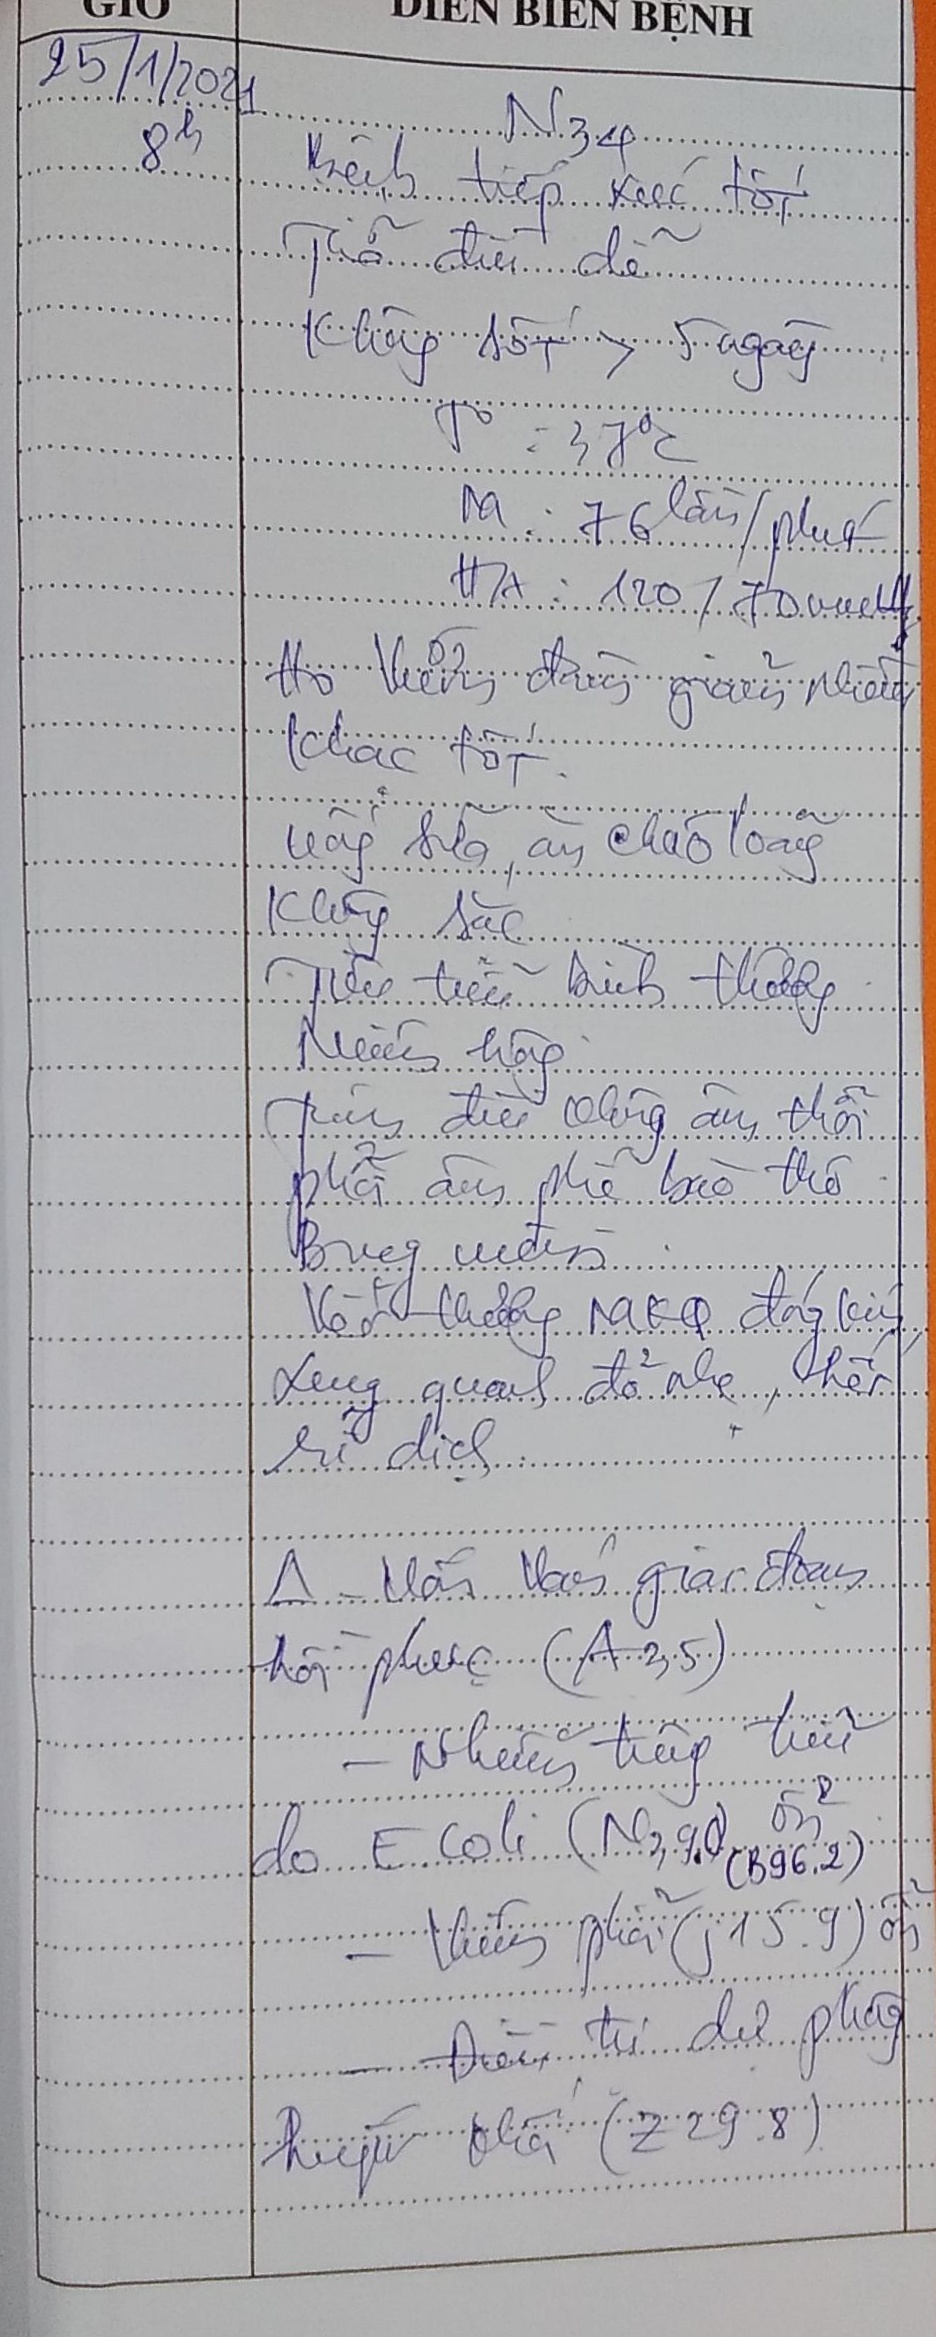 GIỜ
DIỄN BIẾN BỆNH
25/1/2021
N34
8h
Bệnh tiếp xúc tốt
Thở đều dễ
Không sốt > 5 ngày
T° : 37°C
M : 76 lần/phút
HA : 120/70mmHg
Ho đàm giảm nhiều
khạc tốt.
Uống sữa, ăn cháo loãng
Không sặc
Tiêu tiểu bình thường
Niêm hồng
Tim đều không âm thổi
phổi âm phế bào thô
Bụng mềm
Vết thương MKQ đóng kín,
xung quanh đỏ nhẹ, hết
rỉ dịch
Δ - Uốn ván giai đoạn
hồi phục (A35)
- Nhiễm trùng tiểu
do E Coli (N39.0 ổn
(B96.2)
- Viêm phổi (J15.9) ổn
- Điều trị dự phòng
huyết khối (Z29.8)